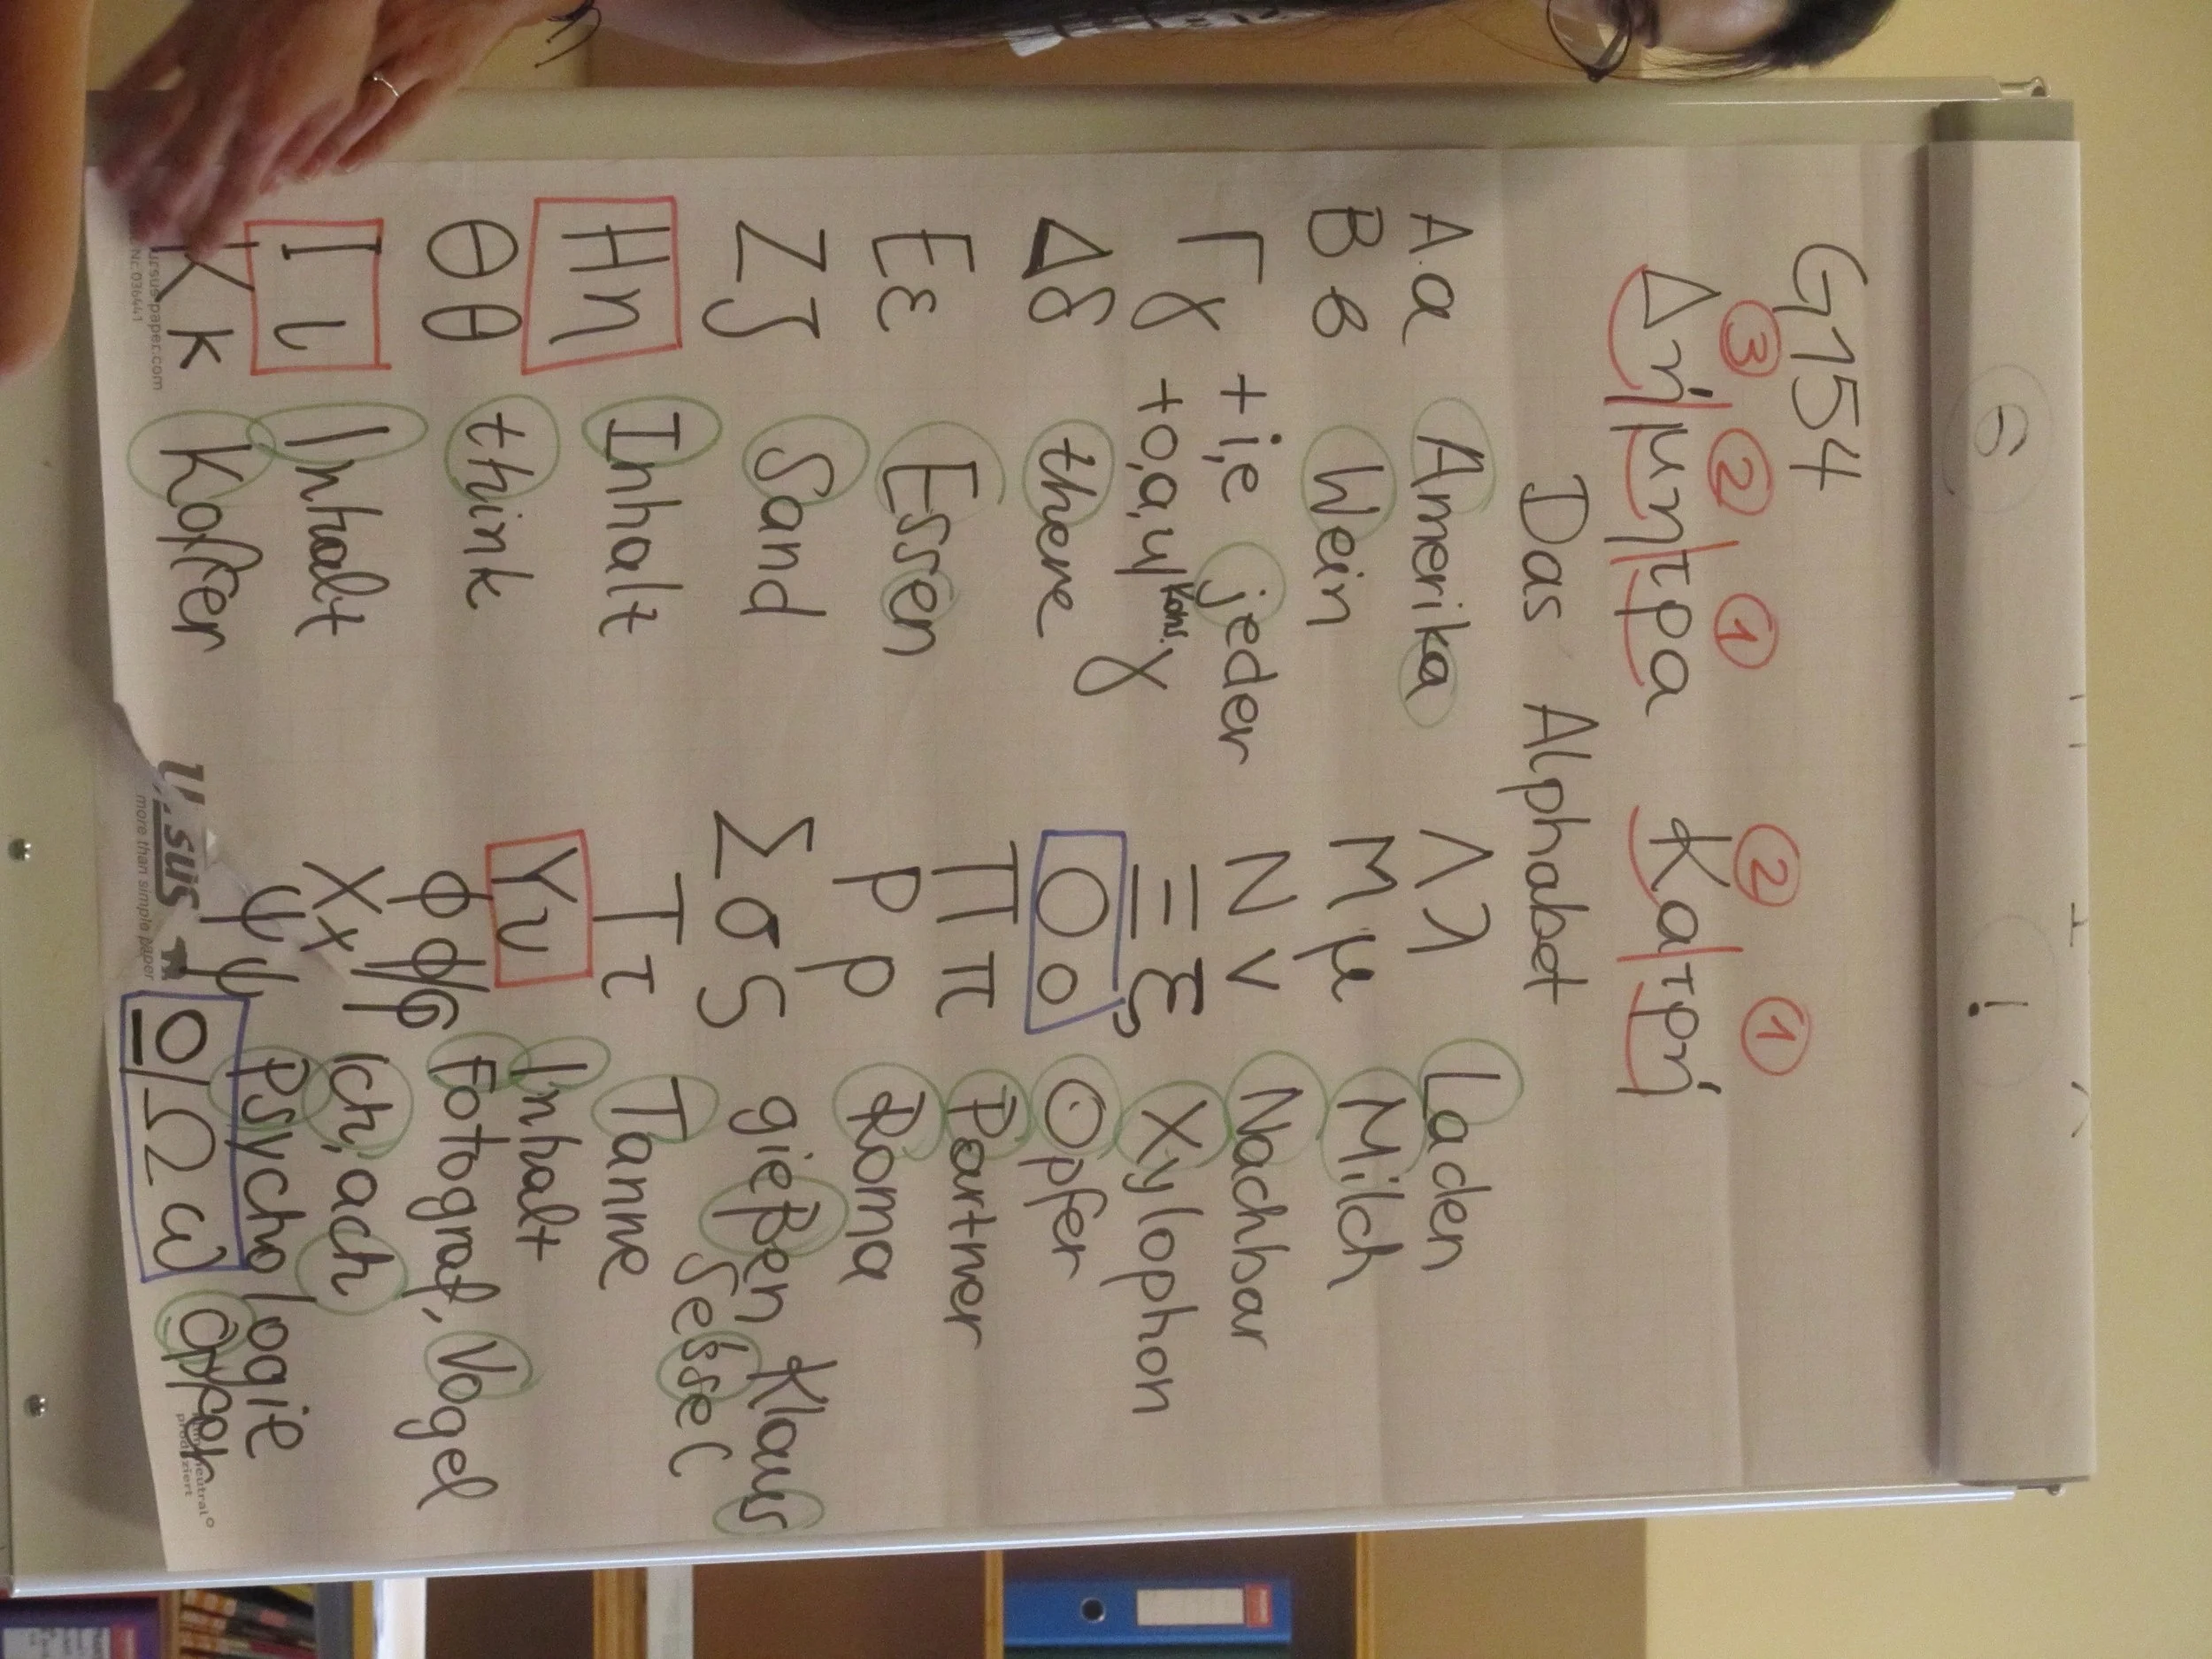 G154
③ ② ① ② ①
Δή|μη|τρα Κα|τρή
Das Alphabet
Α α Amerika
Β β Wein
Γ γ + i,e jeder
+ o,a,y Kons. γ
Δ δ there
Ε ε Essen
Ζ ζ Sand
Η η Inhalt
Θ θ think
Ι ι Inhalt
Κ κ Koffer
Λ λ Laden
Μ μ Milch
Ν ν Nachbar
Ξ ξ Xylophon
Ο ο Opfer
Π π Partner
Ρ ρ Roma
Σ σ ς gießen Klaus
Sessel
Τ τ Tanne
Υ υ Inhalt
Φ φ/φ Fotograf, Vogel
Χ χ Ich, ach
Ψ ψ Psychologie
Ο/Ω ω
ursus-paper.com
Nr. 036441
Ursus
more than simple paper
neutral
produziert